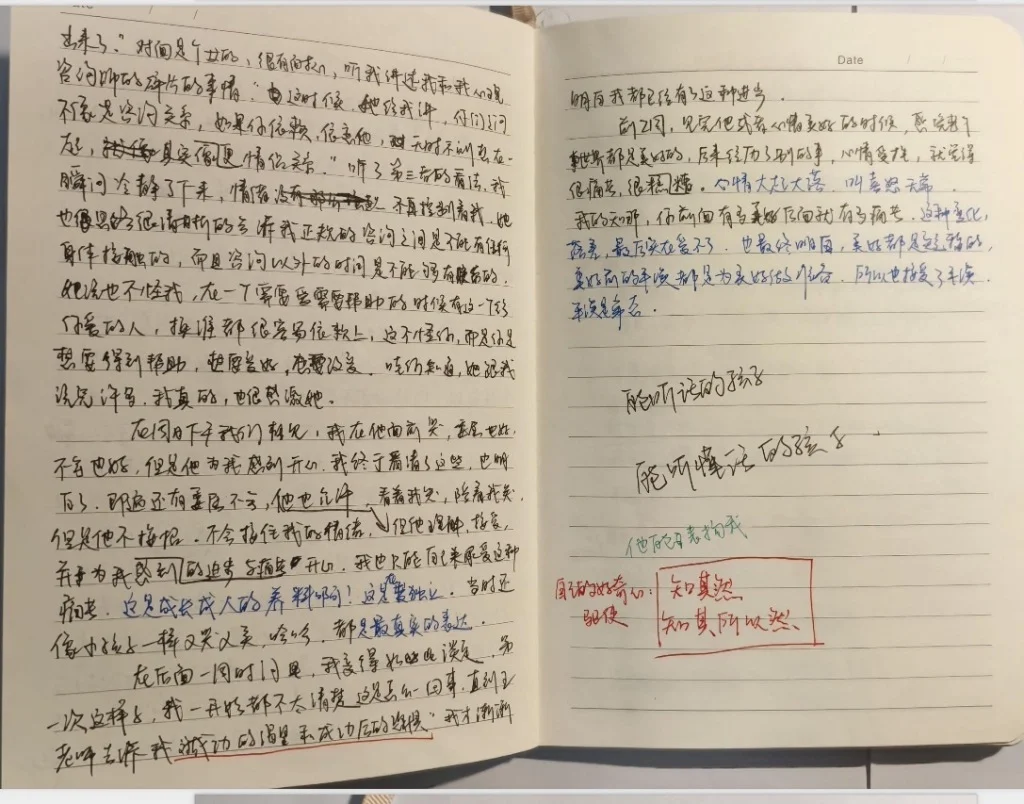 出来了。"对面是个女的，很有向心，听我讲述我和我心理
咨询师的碎片的事情。"这时候，她给我讲，你们之间
不像是咨询关系，如果你依赖，信赖他，天时不
真实 便 情侣关系。"听了第三者的看法，我
瞬间冷静了下来，情绪 不再控制着我。她
也很 很清晰的告诉我正规的咨询之间是不能有任何
身体接触的，而且咨询以外的时间是不能够有 的，
她说也不怪我，在一个需要 帮助的时候有这一个给
你爱的人，换谁都很容易依赖上，这不怪你，而是你是
想要得到帮助，想要变好，想要改变。 你知道，她跟我
说完许多，我真的，也很感激她。
在周日下午我们再见，我在他面前哭，委屈也好，
不舍也好，但是他为我感到开心，我终于看清了这些，也明
白了。即使还有委屈不舍，他也允许，看着我哭，陪着我哭，
但是他不接招。不会接住我的情绪，但他理解，接受，
并为我感到的进步与 开心。我也只能自己来承受这种
痛苦。这是成长成人的养料啊！这是要独立。当时还
像小孩子一样又哭又笑，哈哈，都是最真实的表达。
在后面一周时间里，我变得如此淡定。第
一次这样子，我一开始都不太清楚这是怎么一回事，直到王
老师告诉我 成功的渴望和成功后的 "我才渐渐
Date
明白我都已经有了这种进步。
前2周，见完他或者心情美好的时候，感觉整个
世界都是美好的，后来经历了别的事，心情变坏，就觉得
很痛苦，很糟糕。心情大起大落，叫喜怒无常。
我的天哪，你前面有多美好后面就有多痛苦。这种变化，
落差，最后实在受不了。也最终明白，美好都是短暂的，
美好前的平淡都是为美好做准备。所以也接受了平淡，
平淡是常态。
能听话的孩子
能听懂话的孩子
他的 我
自己的好奇心： 知其然
驱使 知其所以然